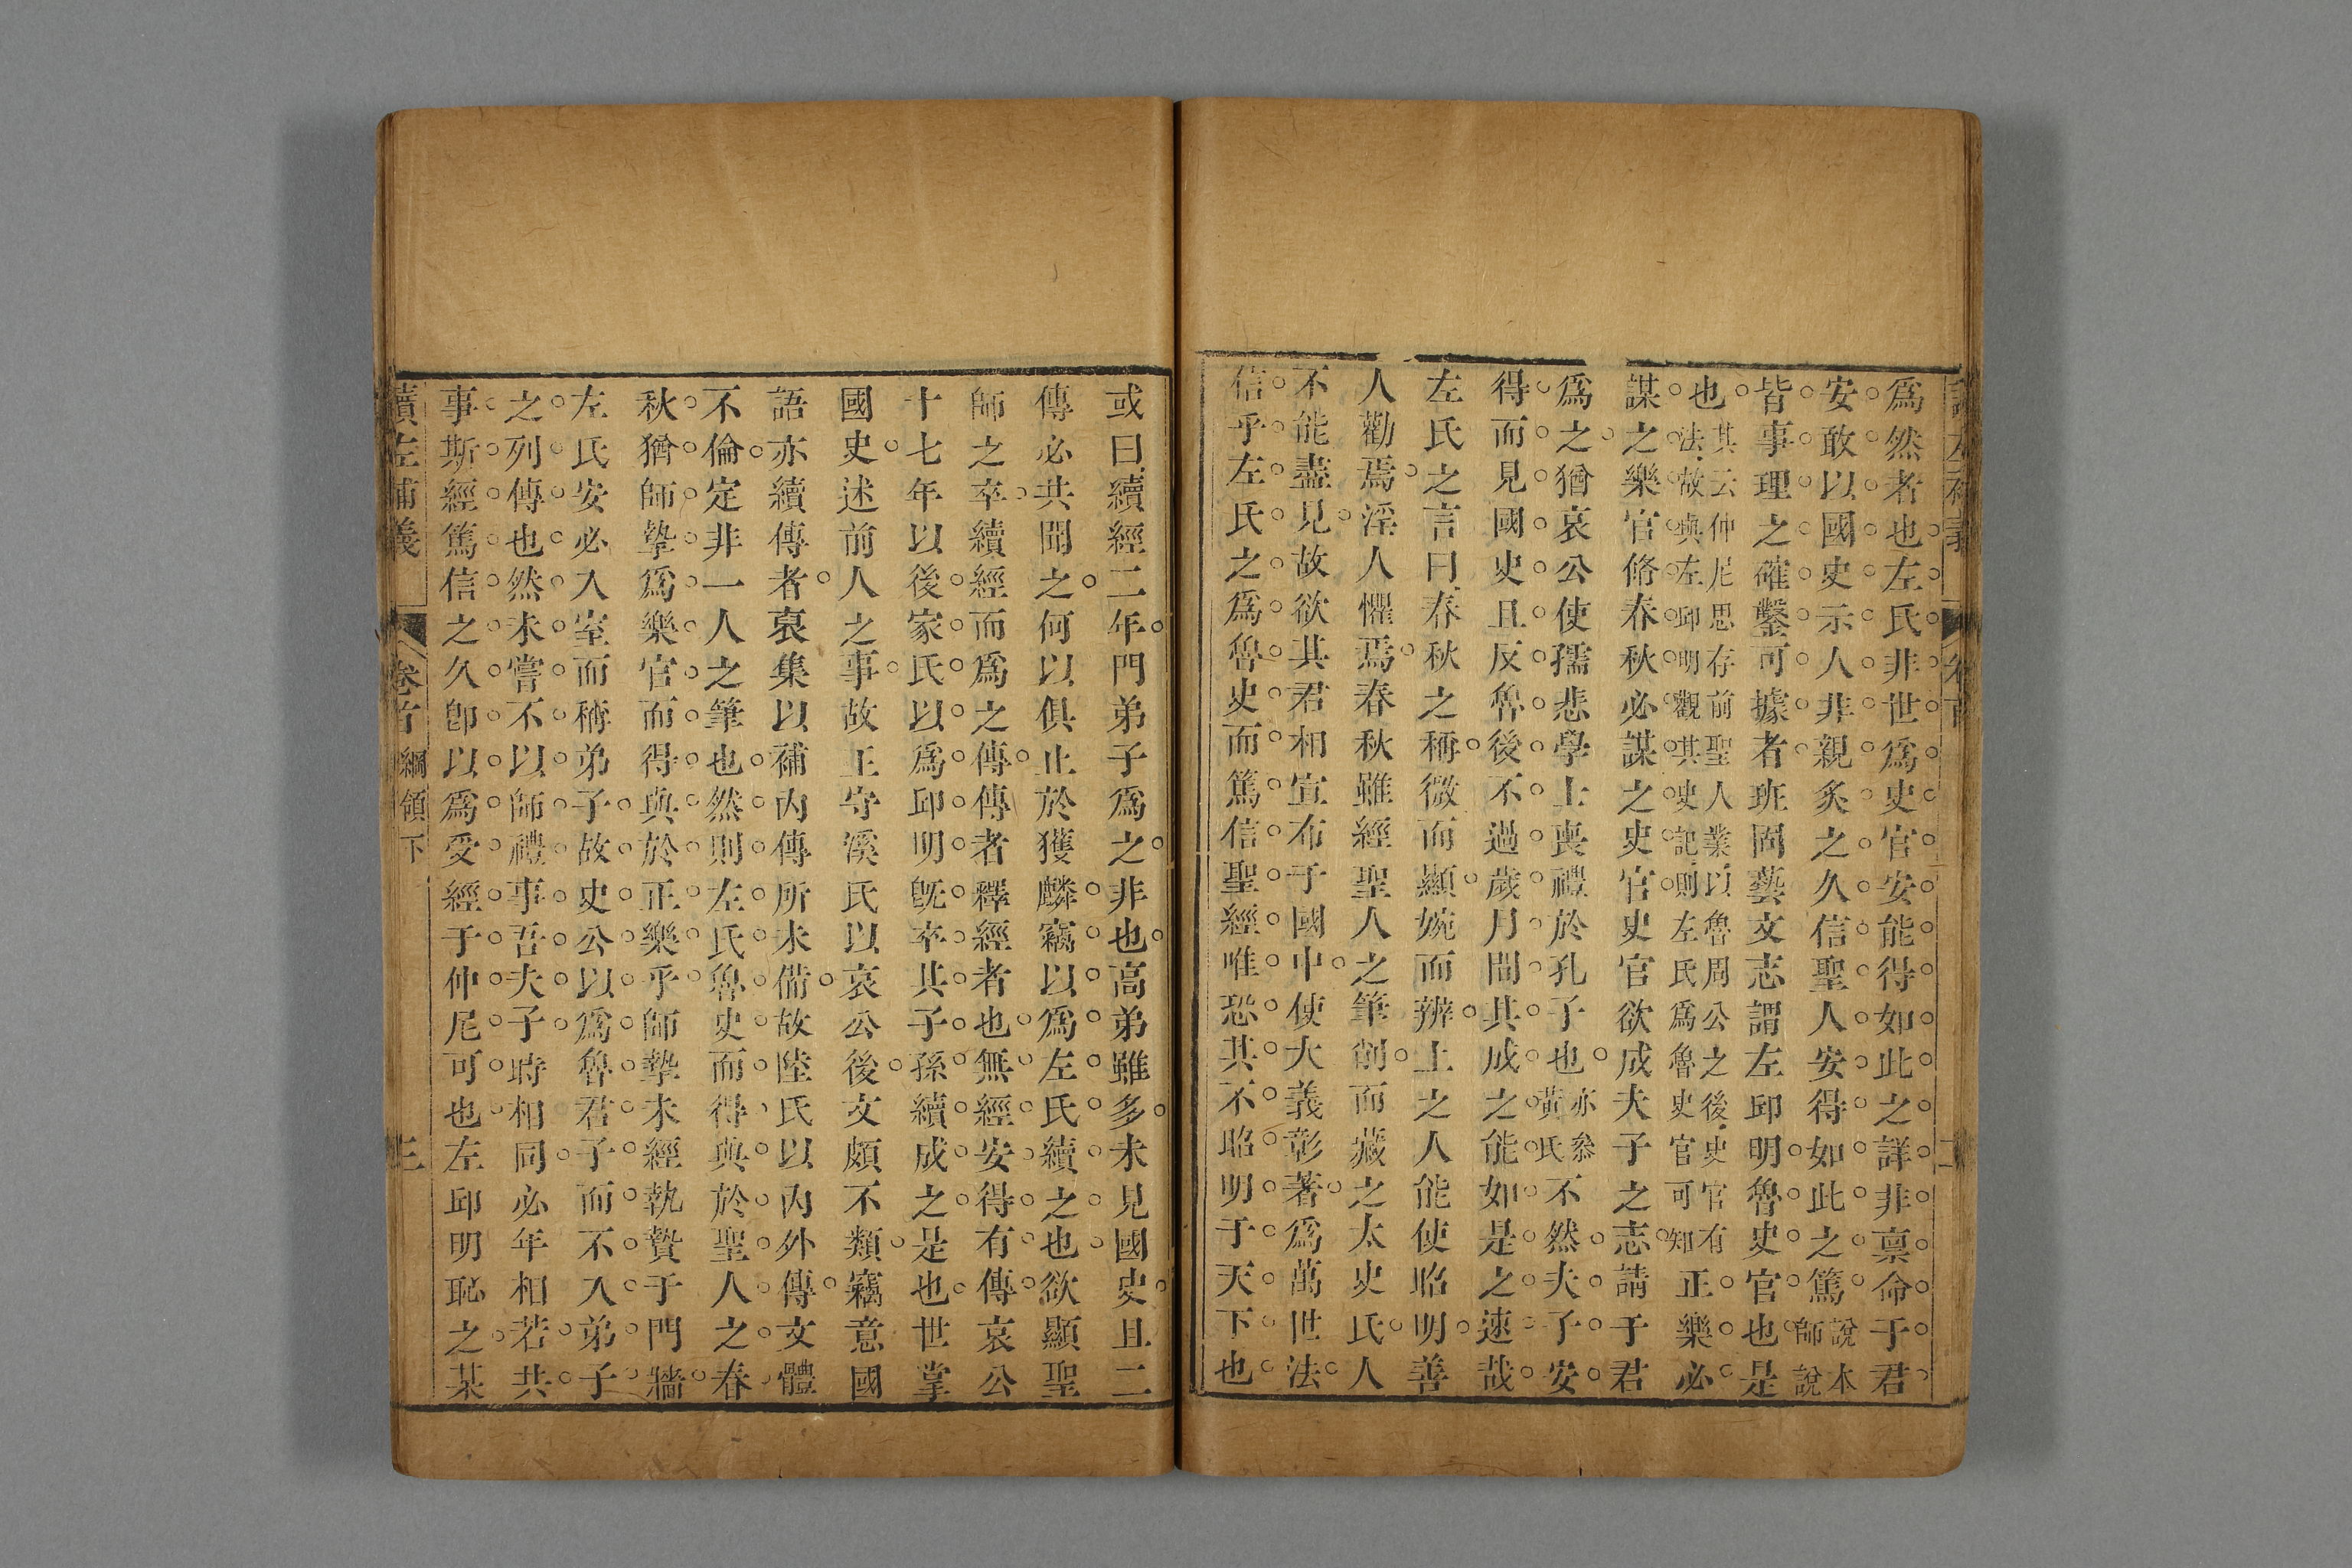 爲然者也左氏非世爲史官安能得如此之詳非禀命于君
安敢以國史示人非親炙之久信聖人安得如此之篤師說本說
皆事理之確鑿可據者班固藝文志謂左邱明魯史官也是
也其云仲尼思存前聖人業以魯周公之後史官有法故與左邱明觀其史記則左氏爲魯史官可知正樂必
謀之樂官脩春秋必謀之史官史官欲成夫子之志請于君
爲之猶哀公使孺悲學士喪禮於孔子也亦叅黄氏不然夫子安
得而見國史且反魯後不過歲月間其成之能如是之速哉
左氏之言曰春秋之稱微而顯婉而辨上之人能使昭明善
人勸焉淫人懼焉春秋雖經聖人之筆削而藏之太史氏人
不能盡見故欲其君相宣布于國中使大義彰著爲萬世法
信乎左氏之爲魯史而篤信聖經唯恐其不昭明于天下也
或曰續經二年門弟子爲之非也高弟雖多未見國史且二
傳必共聞之何以俱止於獲麟竊以爲左氏續之也欲顯聖
師之卒續經而爲之傳傳者釋經者也無經安得有傳哀公
十七年以後家氏以爲邱明旣卒其子孫續成之是也世掌
國史述前人之事故王守溪氏以哀公後文頗不類竊意國
語亦續傳者裒集以補内傳所未備故陸氏以内外傳文體
不倫定非一人之筆也然則左氏魯史而得與於聖人之春
秋猶師摯爲樂官而得與於正樂乎師摯未經執贄于門牆
左氏安必入室而稱弟子故史公以爲魯君子而不入弟子
之列傳也然未嘗不以師禮事吾夫子時相同必年相若共
事斯經篤信之久卽以爲受經于仲尼可也左邱明恥之某
讀左補義 卷首 綱領下 三